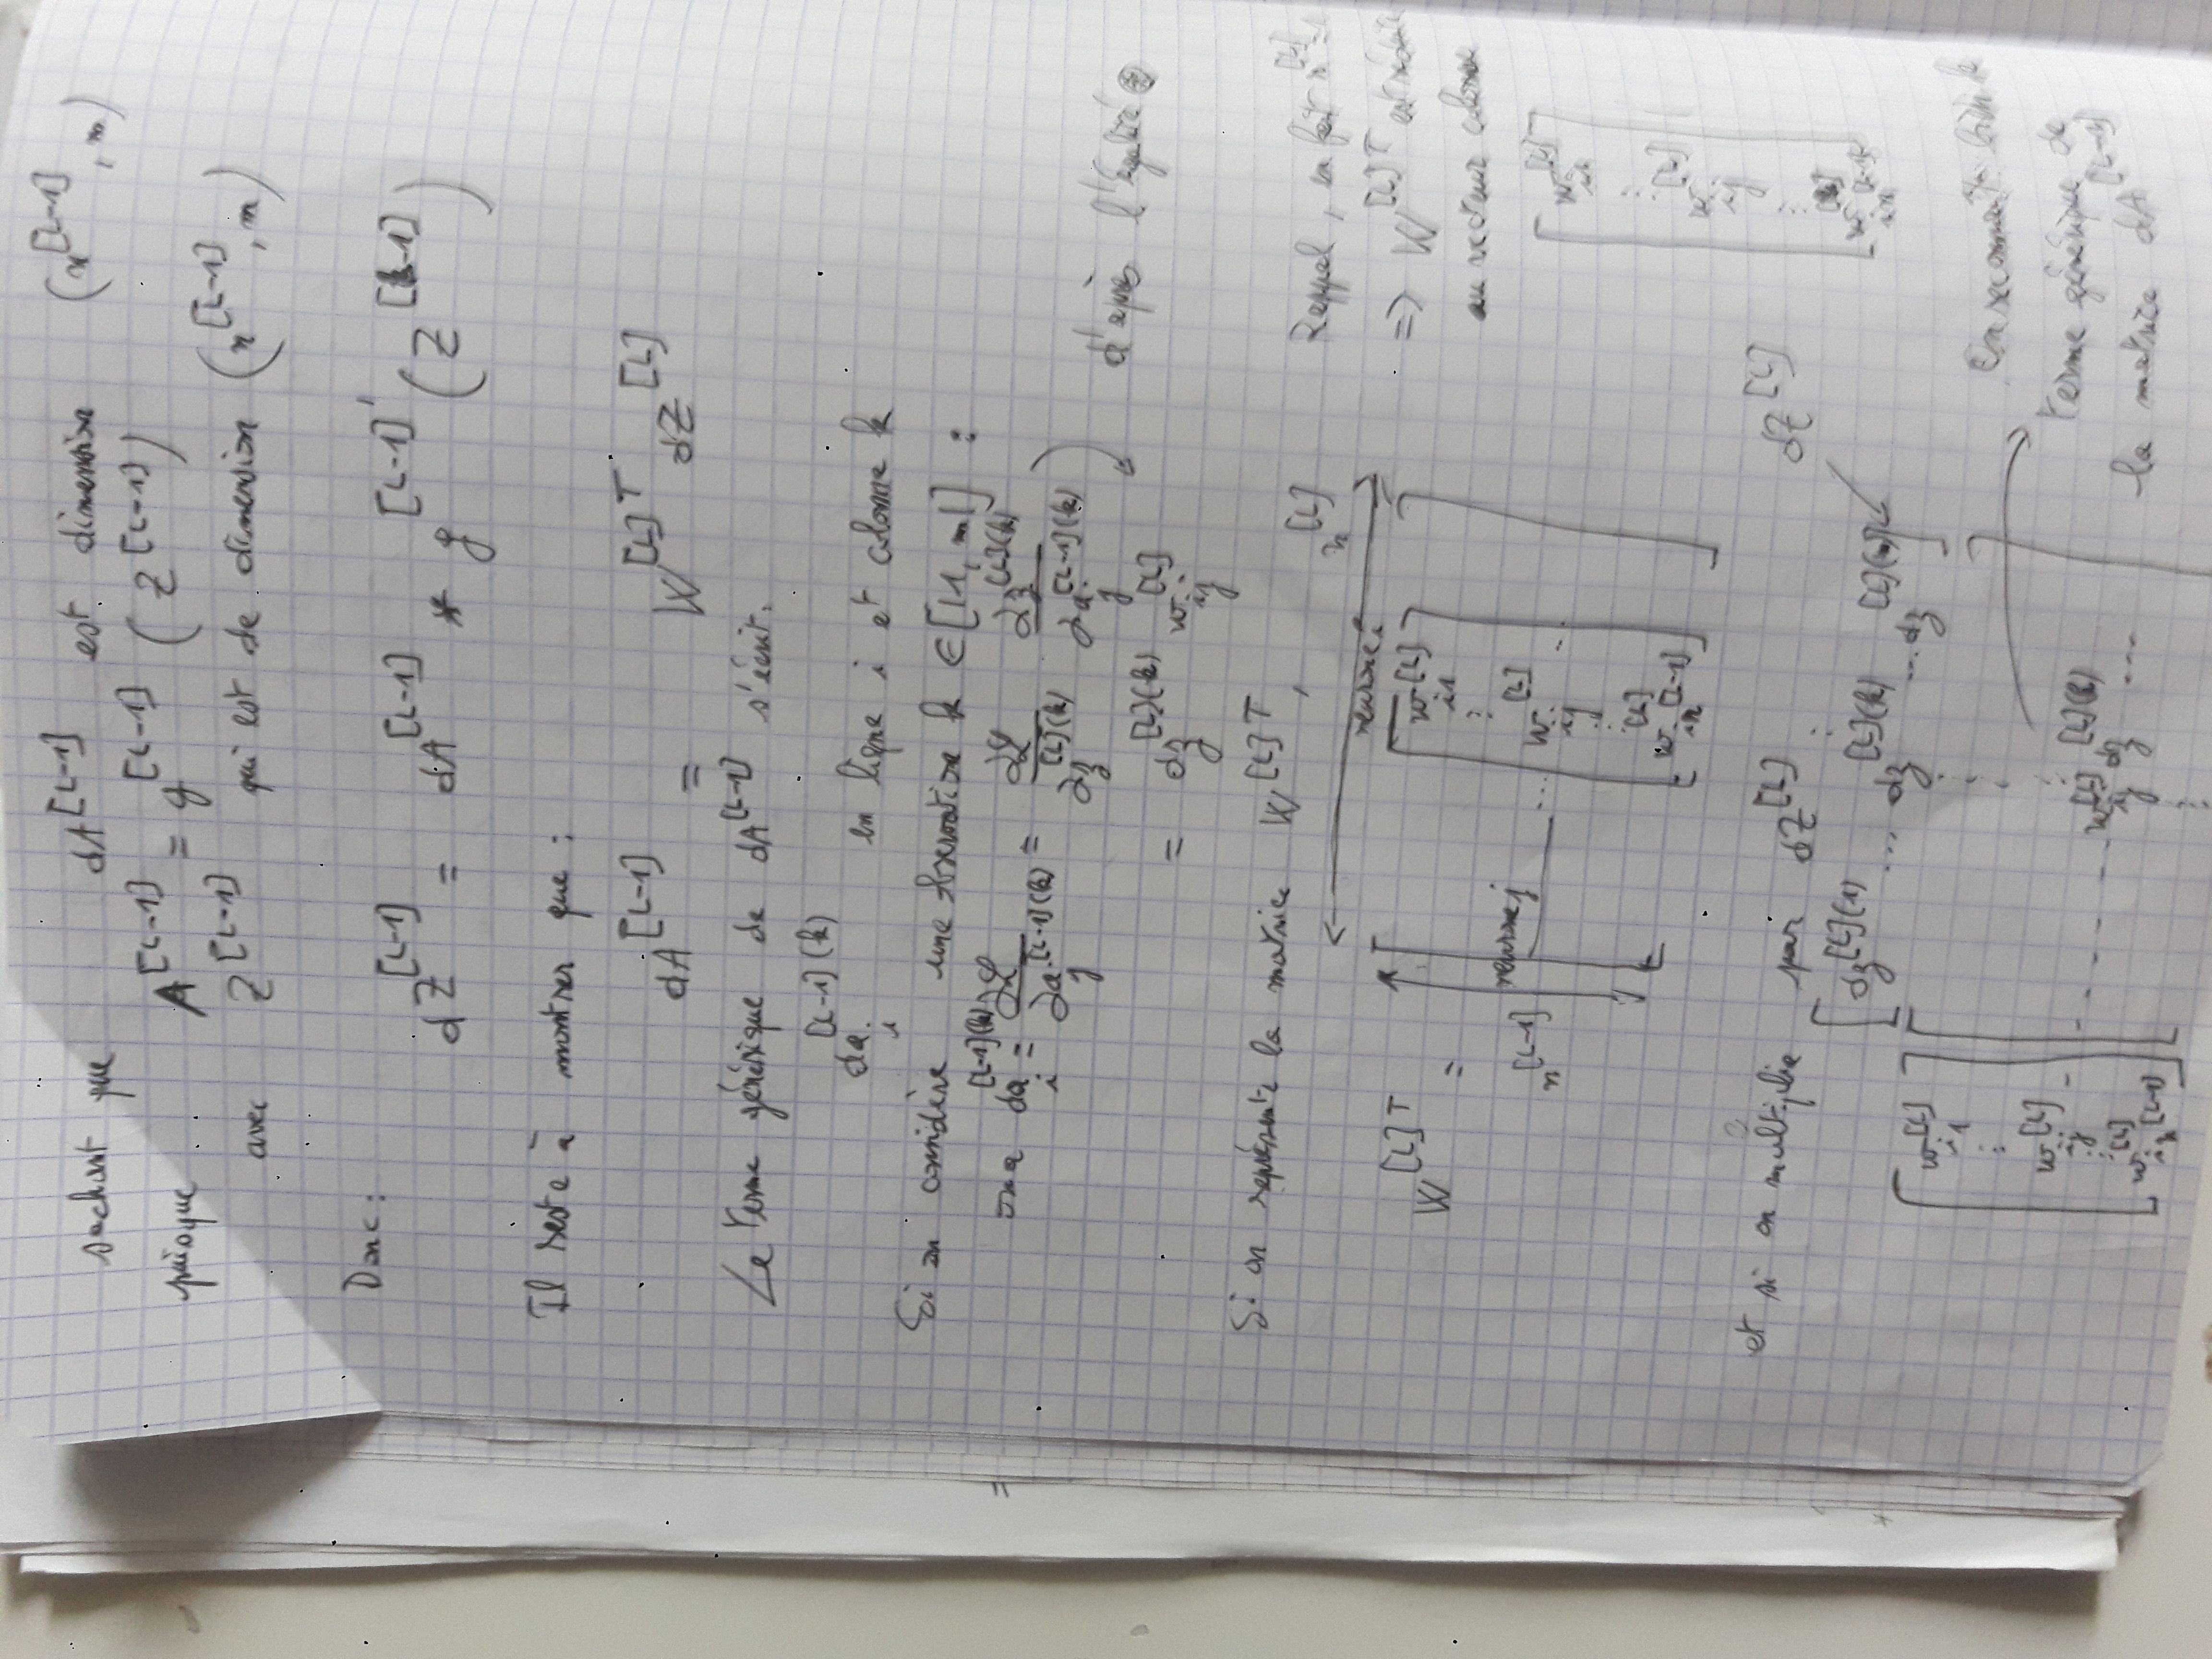 sachant que dA^[L-1] est dimension (n^[L-1], m)
puisque A^[L-1] = g^[L-1] (Z^[L-1])
avec Z^[L-1] qui est de dimension (n^[L-1], m)
Donc :
dZ^[L-1] = dA^[L-1] * g^[L-1]' (Z^[L-1])
Il reste à montrer que :
dA^[L-1] = W^[L]T dZ^[L]
Le terme générique de dA^[L-1] s'écrit.
da_i^[L-1](k) en ligne i et colonne k
Si on considère une observation k ∈ [|1, m|] :
on a da_i^[L-1](k) = ∂L/∂a_j^[L-1](k) = ∂L/∂z^[L](k) ∂z^[L](k)/∂a_j^[L-1](k)
d'après l'égalité ⊛
= dz^[L](k) w_ij^[L]
Si on représente la matrice W^[L]T,
n^[L]
Rappel, en fait n^[L]=1
neurone i
=> W^[L]T est réduite
au vecteur colonne
W^[L]T =
n^[L-1]
neurone j
w_i1^[L]
⋮
... w_ij^[L] ...
⋮
w_in^[L-1]^[L]
w_ij^[L]
et si on multiplie par dZ^[L] :
dZ^[L]
[dz^[L](1) ... dz^[L](k) ... dz^[L](m)]
w_i1^[L]
⋮
w_ij^[L]
⋮
w_in^[L-1]^[L]
- - - - w_ij^[L] dz^[L](k) ...
On reconnait bien le
terme générique de
la matrice dA^[L-1]